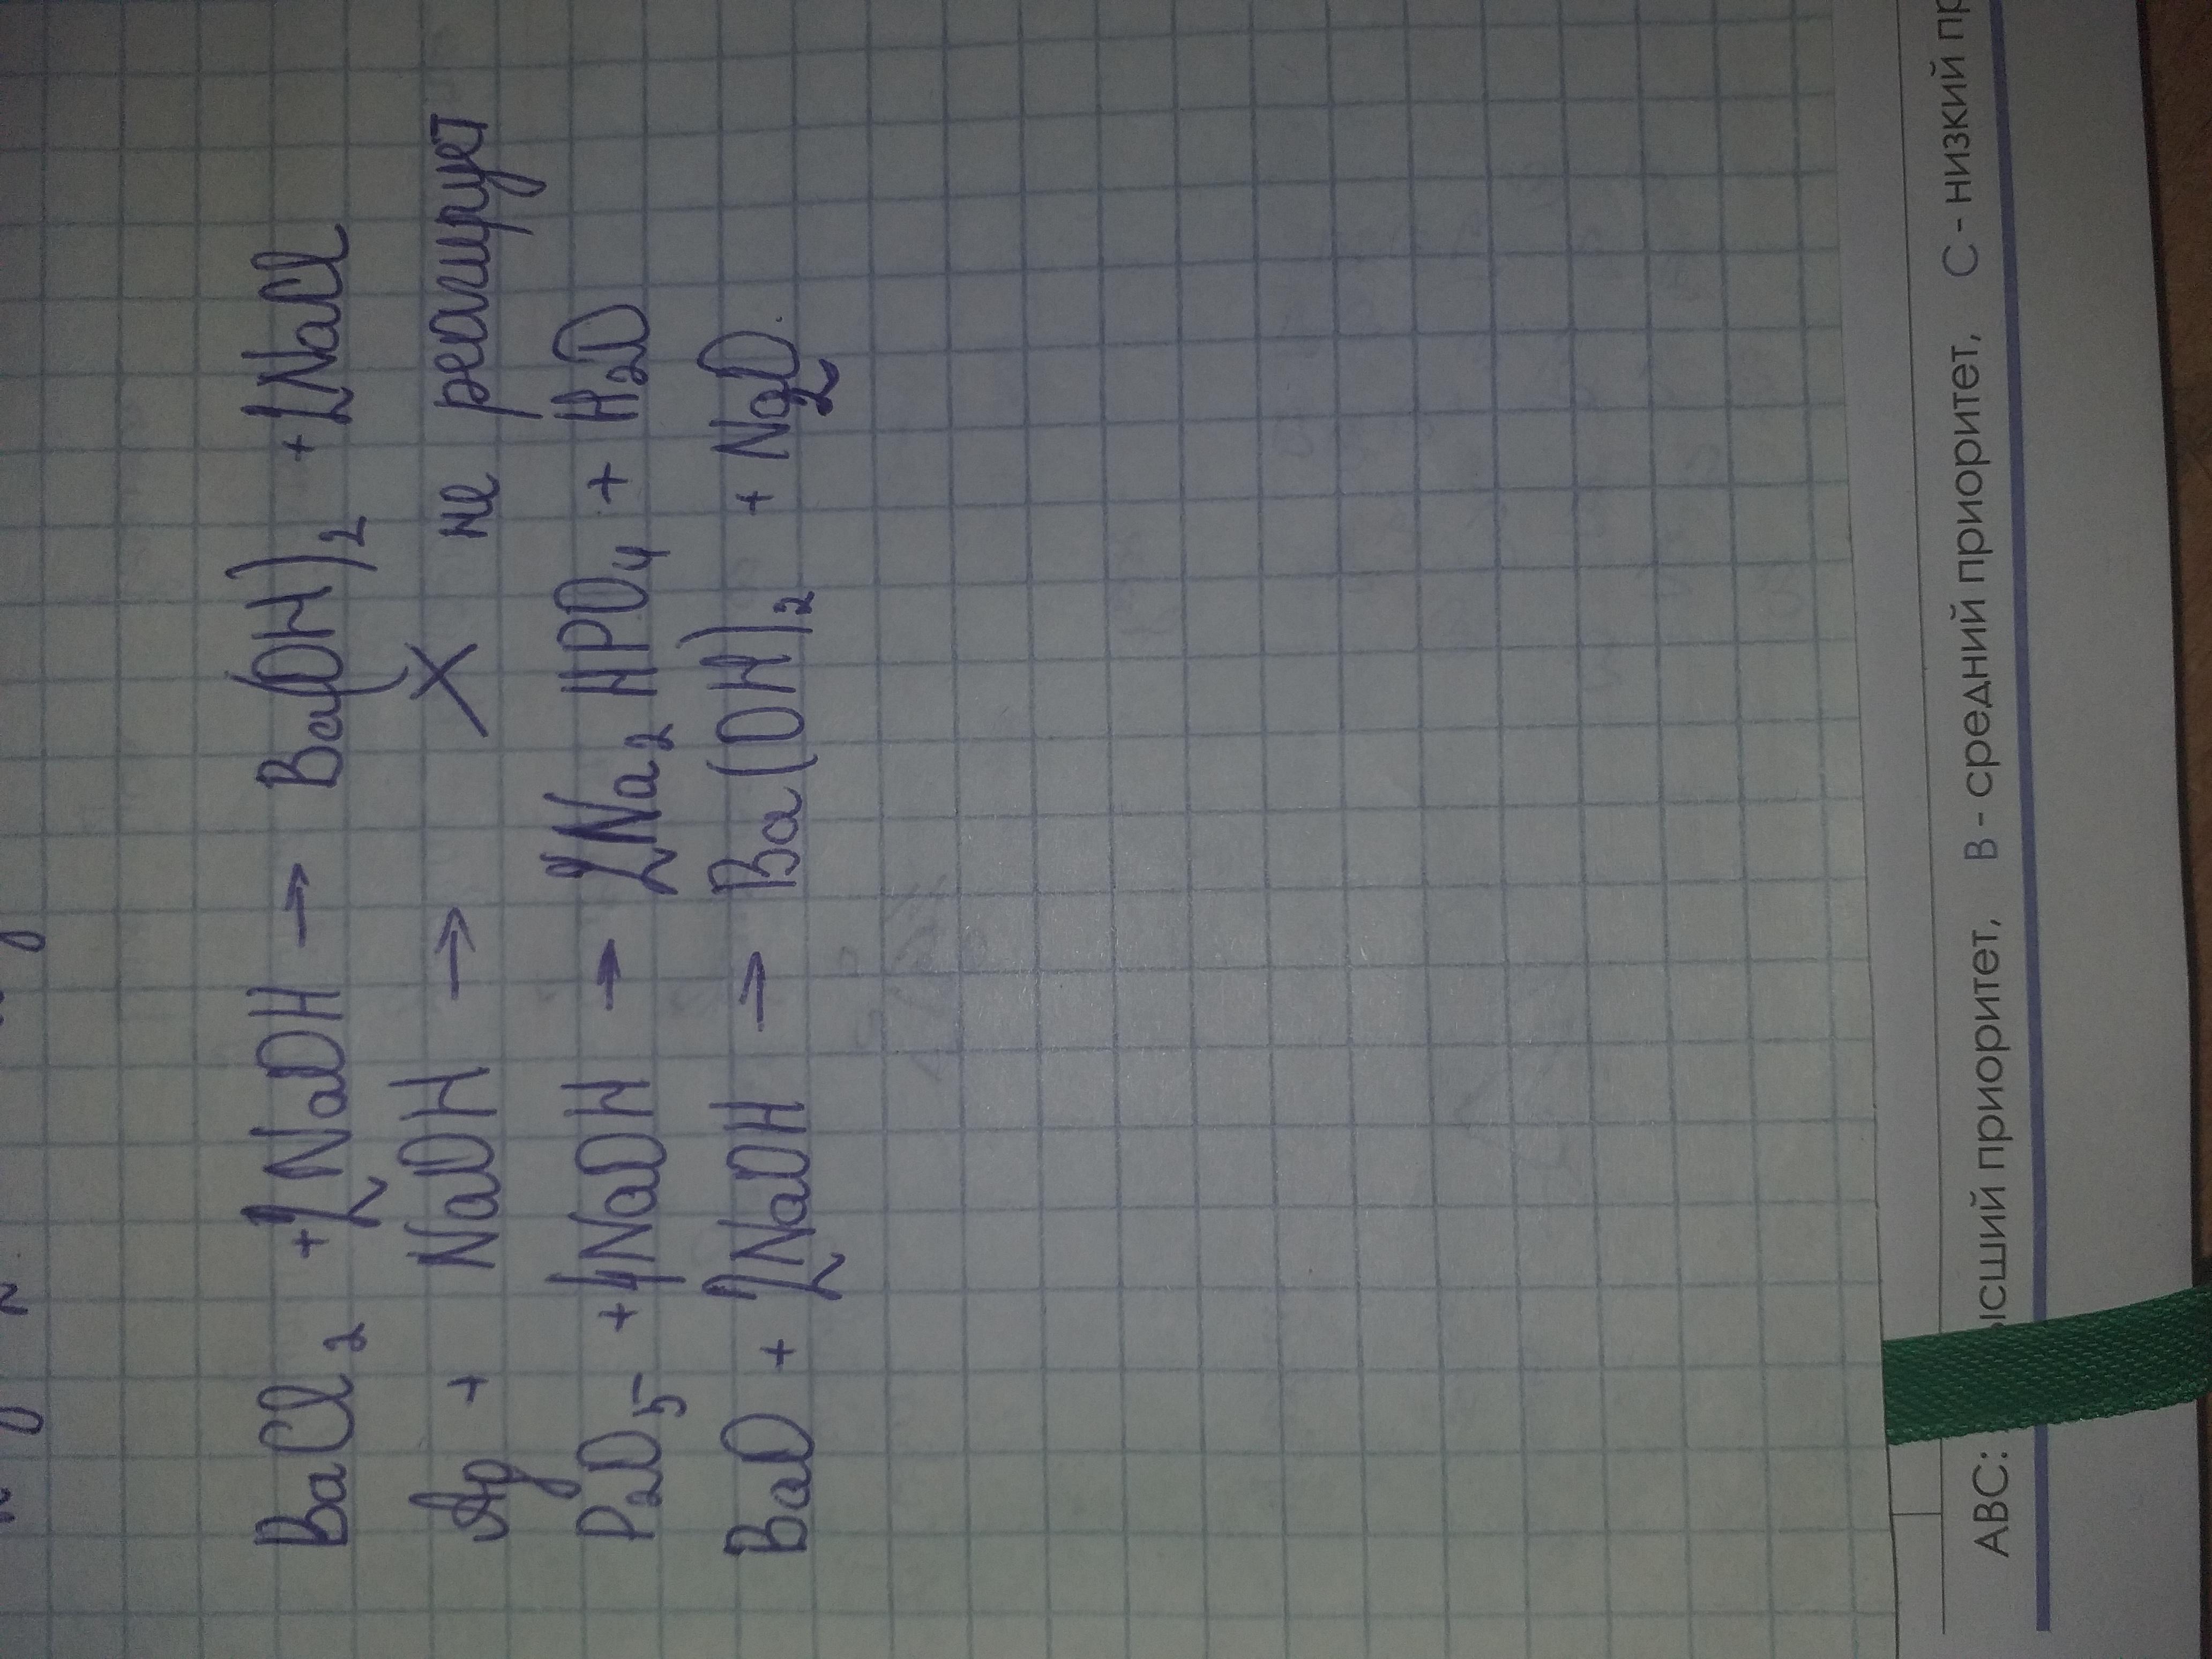 BaCl₂ + 2NaOH → Ba(OH)₂ + 2NaCl
Ag + NaOH → X не реагирует
P₂O₅ + 4NaOH → 2Na₂HPO₄ + H₂O
BaO + 2NaOH → Ba(OH)₂ + Na₂O.
ABC: ысший приоритет, B - средний приоритет, C - низкий пр